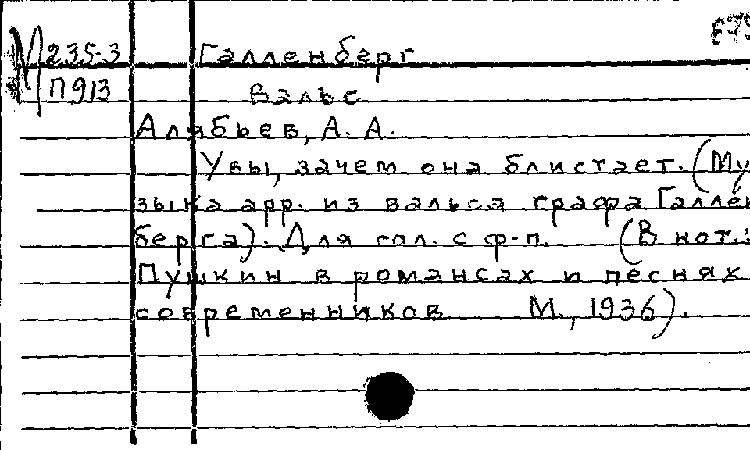 М 235-3 Галленберг
П913 Вальс
Алябьев, А. А.
Увы, зачем она блистает. (Му
зыка арр. из вальса графа Галлен
берга). Для гол. с ф-п. (В кот.:
Пушкин в романсах и песнях
современников М., 1936).